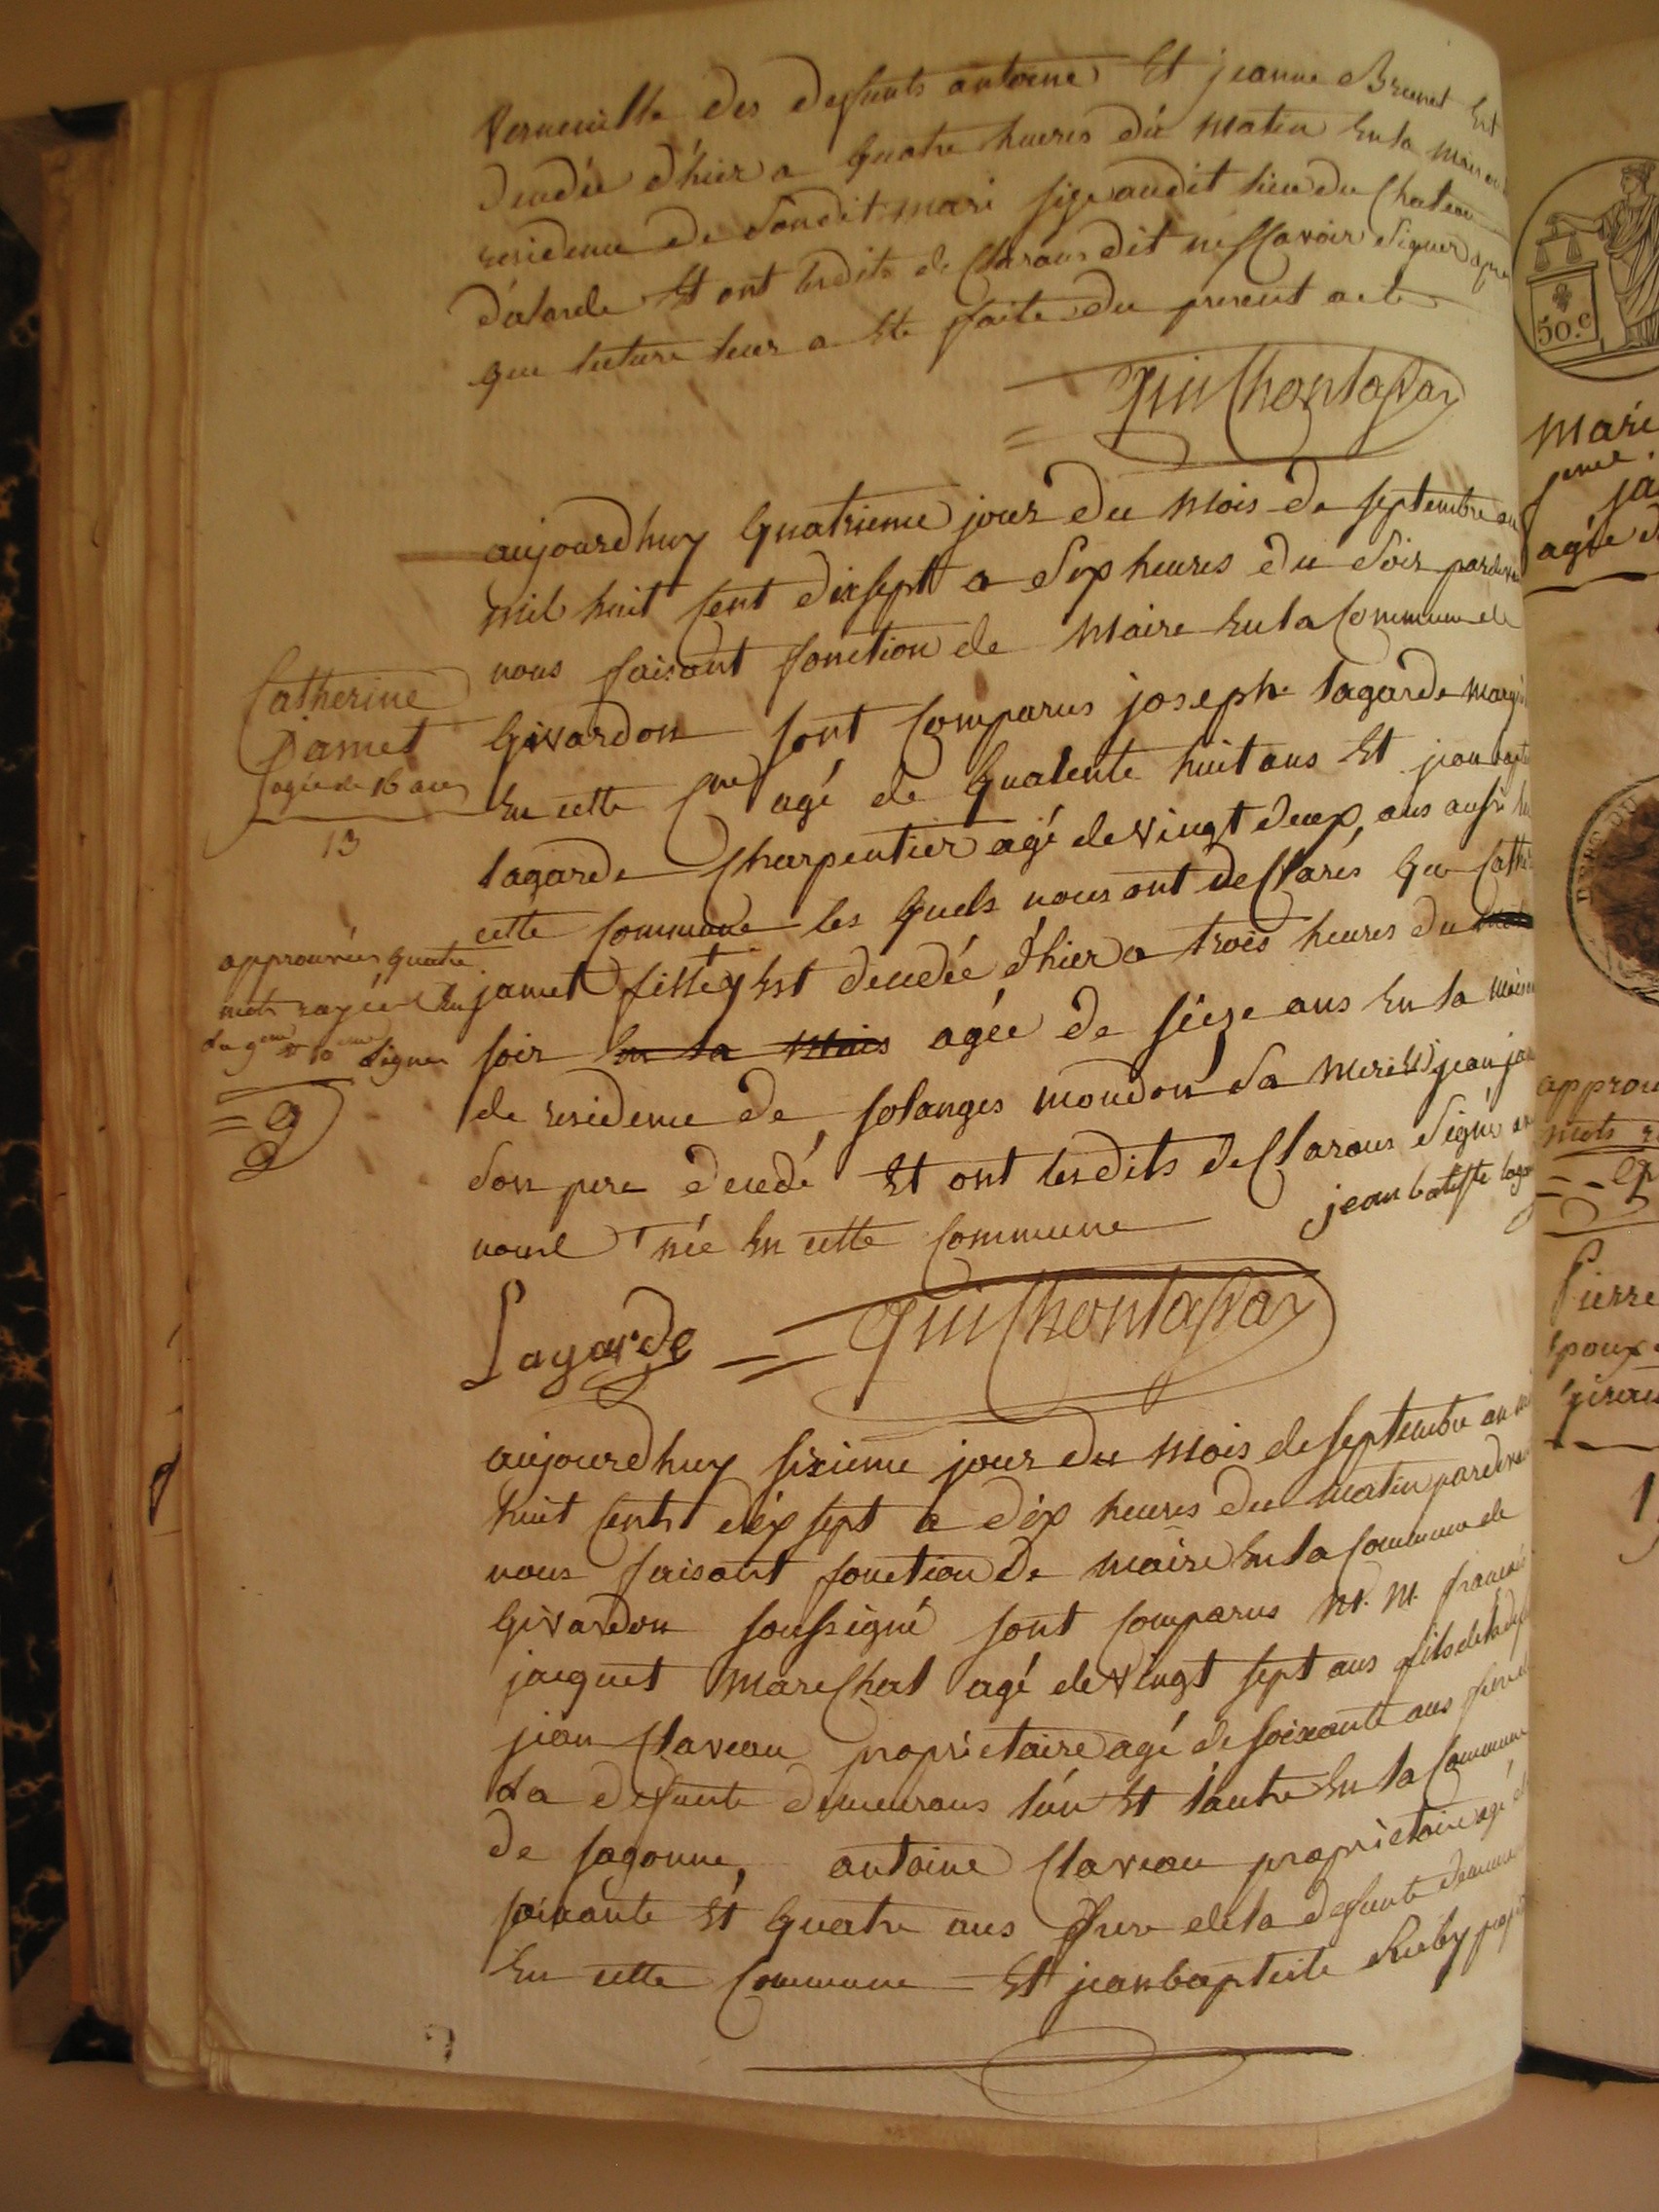 Verneuille des deffunts antoine Et jeanne Brunet Est
decedée d'hier a quatre heures du matin En la maison
residence de Sondit mari sise audit lieu du Chateau
d'alarde Et ont lesdits declarans dit ne sçavoir Signer apres
que lecture leur a Ete faite du present acte
Guichontasvay
aujourdhuy quatrieme jour du mois de septembre an
mil huit cent dixsept a Six heures du Soir pardevant
nous faisant fonction de Maire En la Commune de
Givardon sont Comparus joseph lagarde
En cette Cne agé de quatente huit ans Et jean bapte
lagarde Charpentier agé de vingt deux ans aussi
cette Commune les quels nous ont declarés que Cathe
jamet fille Est decedée d'hier a trois heures du
soir En la Mais agée de sieze ans En la maison
de residence de Solanges moudon Sa mere Et jean
Son pere decedé Et ont lesdits declarans Signé
nous née En cette Commune
jean batiste lagar
Lagarde
Guichontasvay
Catherine
Jamet
agée de 16 ans
13
approuvés quatre
mots rayés En
la 9eme et 10eme Lignes
= G
aujourdhuy sixieme jour du mois de septembre an mil
huit Cent dixsept a dix heures du matin pardevant
nous faisant fonction de maire En la Commune de
Givardon soussigné sont Comparus M. M. francois
jacquet Marechal agé de vingt sept ans fils de la def
jean Claveau proprietaire agé de soixante ans frere de
La defunte demeurans l'un Et l'autre En la Commune
de sagonne, antoine Claveau proprietaire agé de
soixante Et quatre ans frere de la defunte demeurant
En cette Commune = Et jean baptiste Ruby prop
50.c
Marie
feme
ja
agée d
approu
mots r
Pierre
Epoux
1